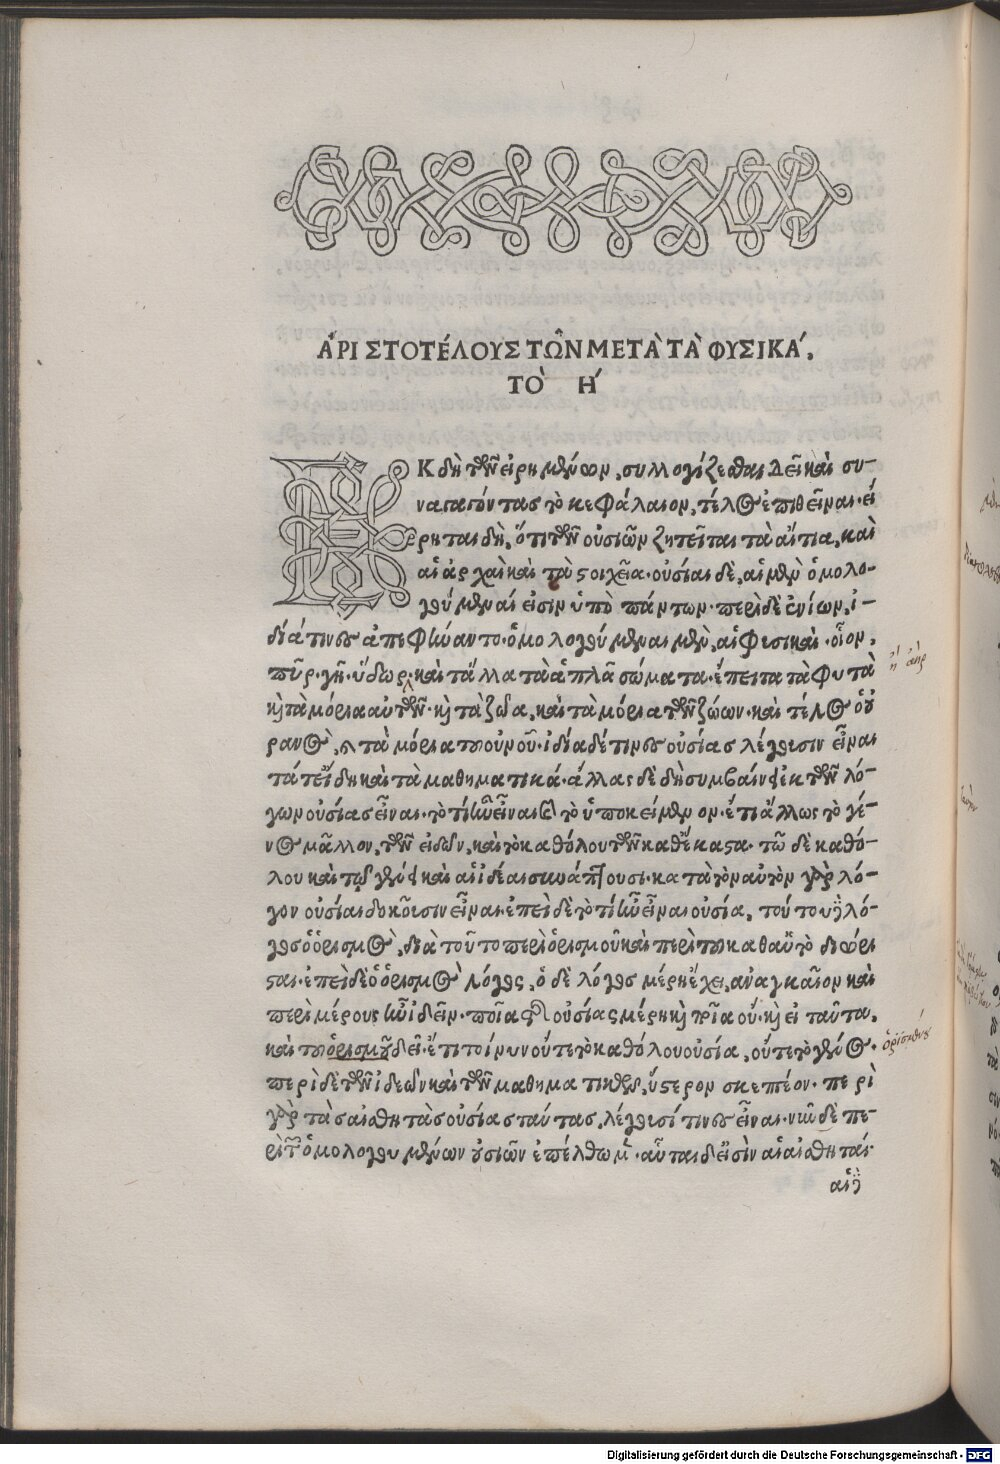 ἈΡΙΣΤΟΤΈΛΟΥΣ ΤΩ͂Ν ΜΕΤᾺ ΤᾺ ΦΥΣΙΚΆ.
ΤῸ Ή
ΕΚ δὴ τῶν εἰρημένων, συλλογίζεσθαι Δεῖ καὶ συ-
ναγαγόντας τὸ κεφάλαιον, τέλος ἐπιθεῖναι· εἴ
ρηται δὴ, ὅτι τῶν οὐσιῶν ζητεῖται τὰ αἴτια, καὶ
αἱ ἀρχαὶ καὶ τὰ στοιχεῖα· οὐσίαι δὲ, αἱ μὲν ὁμολο-
γούμεναί εἰσιν ὑπὸ πάντων· περὶ δὲ ἐνίων, ἰ-
δίᾳ τινὲς ἀπεφήναντο· ὁμολογούμεναι μὲν, αἱ φυσικαὶ· οἷον,
πῦρ· γῆ· ὕδωρ, καὶ τἄλλα τὰ ἁπλᾶ σώματα· ἔπειτα τὰ φυτὰ
καὶ τὰ μόρια αὐτῶν· καὶ τὰ ζῶα, καὶ τὰ μόρια τῶν ζώων· καὶ τέλος ὁ οὐ
ρανὸς, καὶ τὰ μόρια τοῦ οὐρανοῦ· ἰδίᾳ δέ τινες οὐσίας λέγουσιν εἶναι
τά τε εἴδη καὶ τὰ μαθηματικά· ἄλλας δὲ δὴ συμβαίνει ἐκ τῶν λό-
γων οὐσίας εἶναι· τὸ τί ἦν εἶναι καὶ τὸ ὑποκείμενον· ἔτι ἄλλως τὸ γέ-
νος μᾶλλον, τῶν εἰδῶν, καὶ τὸ καθόλου τῶν καθέκαστα· τῷ δὲ καθό-
λου καὶ τῷ γένει καὶ αἱ ἰδέαι συνάπτουσι· κατὰ τὸν αὐτὸν γὰρ λό-
γον οὐσίαι δοκοῦσιν εἶναι· ἐπεὶ δὲ τὸ τί ἦν εἶναι οὐσία, τούτου δὲ λό-
γος ὁ ὁρισμὸς, διὰ τοῦτο περὶ ὁρισμοῦ καὶ περὶ τοῦ καθαὑτὸ διώρι
σται· ἐπεὶ δὲ ὁ ὁρισμὸς λόγος, ὁ δὲ λόγος μέρη ἔχει, ἀναγκαῖον καὶ
περὶ μέρους ἦν ἰδεῖν· ποῖα τῆς οὐσίας μέρη καὶ ποῖα οὔ· καὶ εἰ ταῦτα,
καὶ τοῦ ὁρισμοῦ δεῖ· ἔτι τοίνυν οὔτε τὸ καθόλου οὐσία, οὔτε τὸ γένος·
περὶ δὲ τῶν ἰδεῶν καὶ τῶν μαθηματικῶν, ὕστερον σκεπτέον· περὶ
γὰρ τὰς αἰσθητὰς οὐσίας ταύτας, λέγουσί τινες εἶναι· νῦν δὲ πε-
ρὶ τῶν ὁμολογουμένων οὐσιῶν ἐπέλθωμεν· αὗται δ εἰσὶν αἱ αἰσθηταί·
αἱ δ
ἢ ἀὴρ
ὁρισθὲν
Digitalisierung gefördert durch die Deutsche Forschungsgemeinschaft - DFG